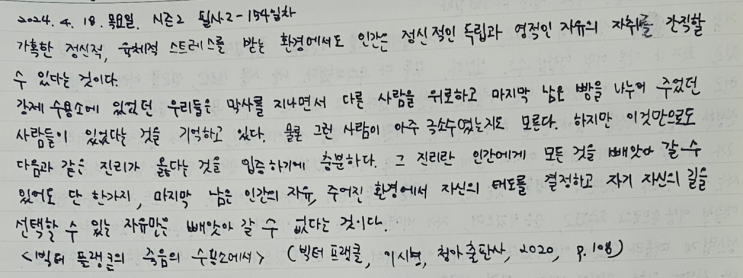 2024. 4. 18. 목요일. 시즌2 필사2-154일차
가혹한 정신적, 육체적 스트레스를 받는 환경에서도 인간은 정신적인 독립과 영적인 자유의 자취를 간직할
수 있다는 것이다.
강제 수용소에 있었던 우리들은 막사를 지나면서 다른 사람을 위로하고 마지막 남은 빵을 나누어 주었던
사람들이 있었다는 것을 기억하고 있다. 물론 그런 사람이 아주 극소수였는지도 모른다. 하지만 이것만으로도
다음과 같은 진리가 옳다는 것을 입증하기에 충분하다. 그 진리란 인간에게 모든 것을 빼앗아 갈 수
있어도 단 한가지, 마지막 남은 인간의 자유, 주어진 환경에서 자신의 태도를 결정하고 자기 자신의 길을
선택할 수 있는 자유만은 빼앗아 갈 수 없다는 것이다.
<빅터 플랭클의 죽음의 수용소에서> (빅터 프랭클, 이시형, 청아출판사, 2020, p.108)